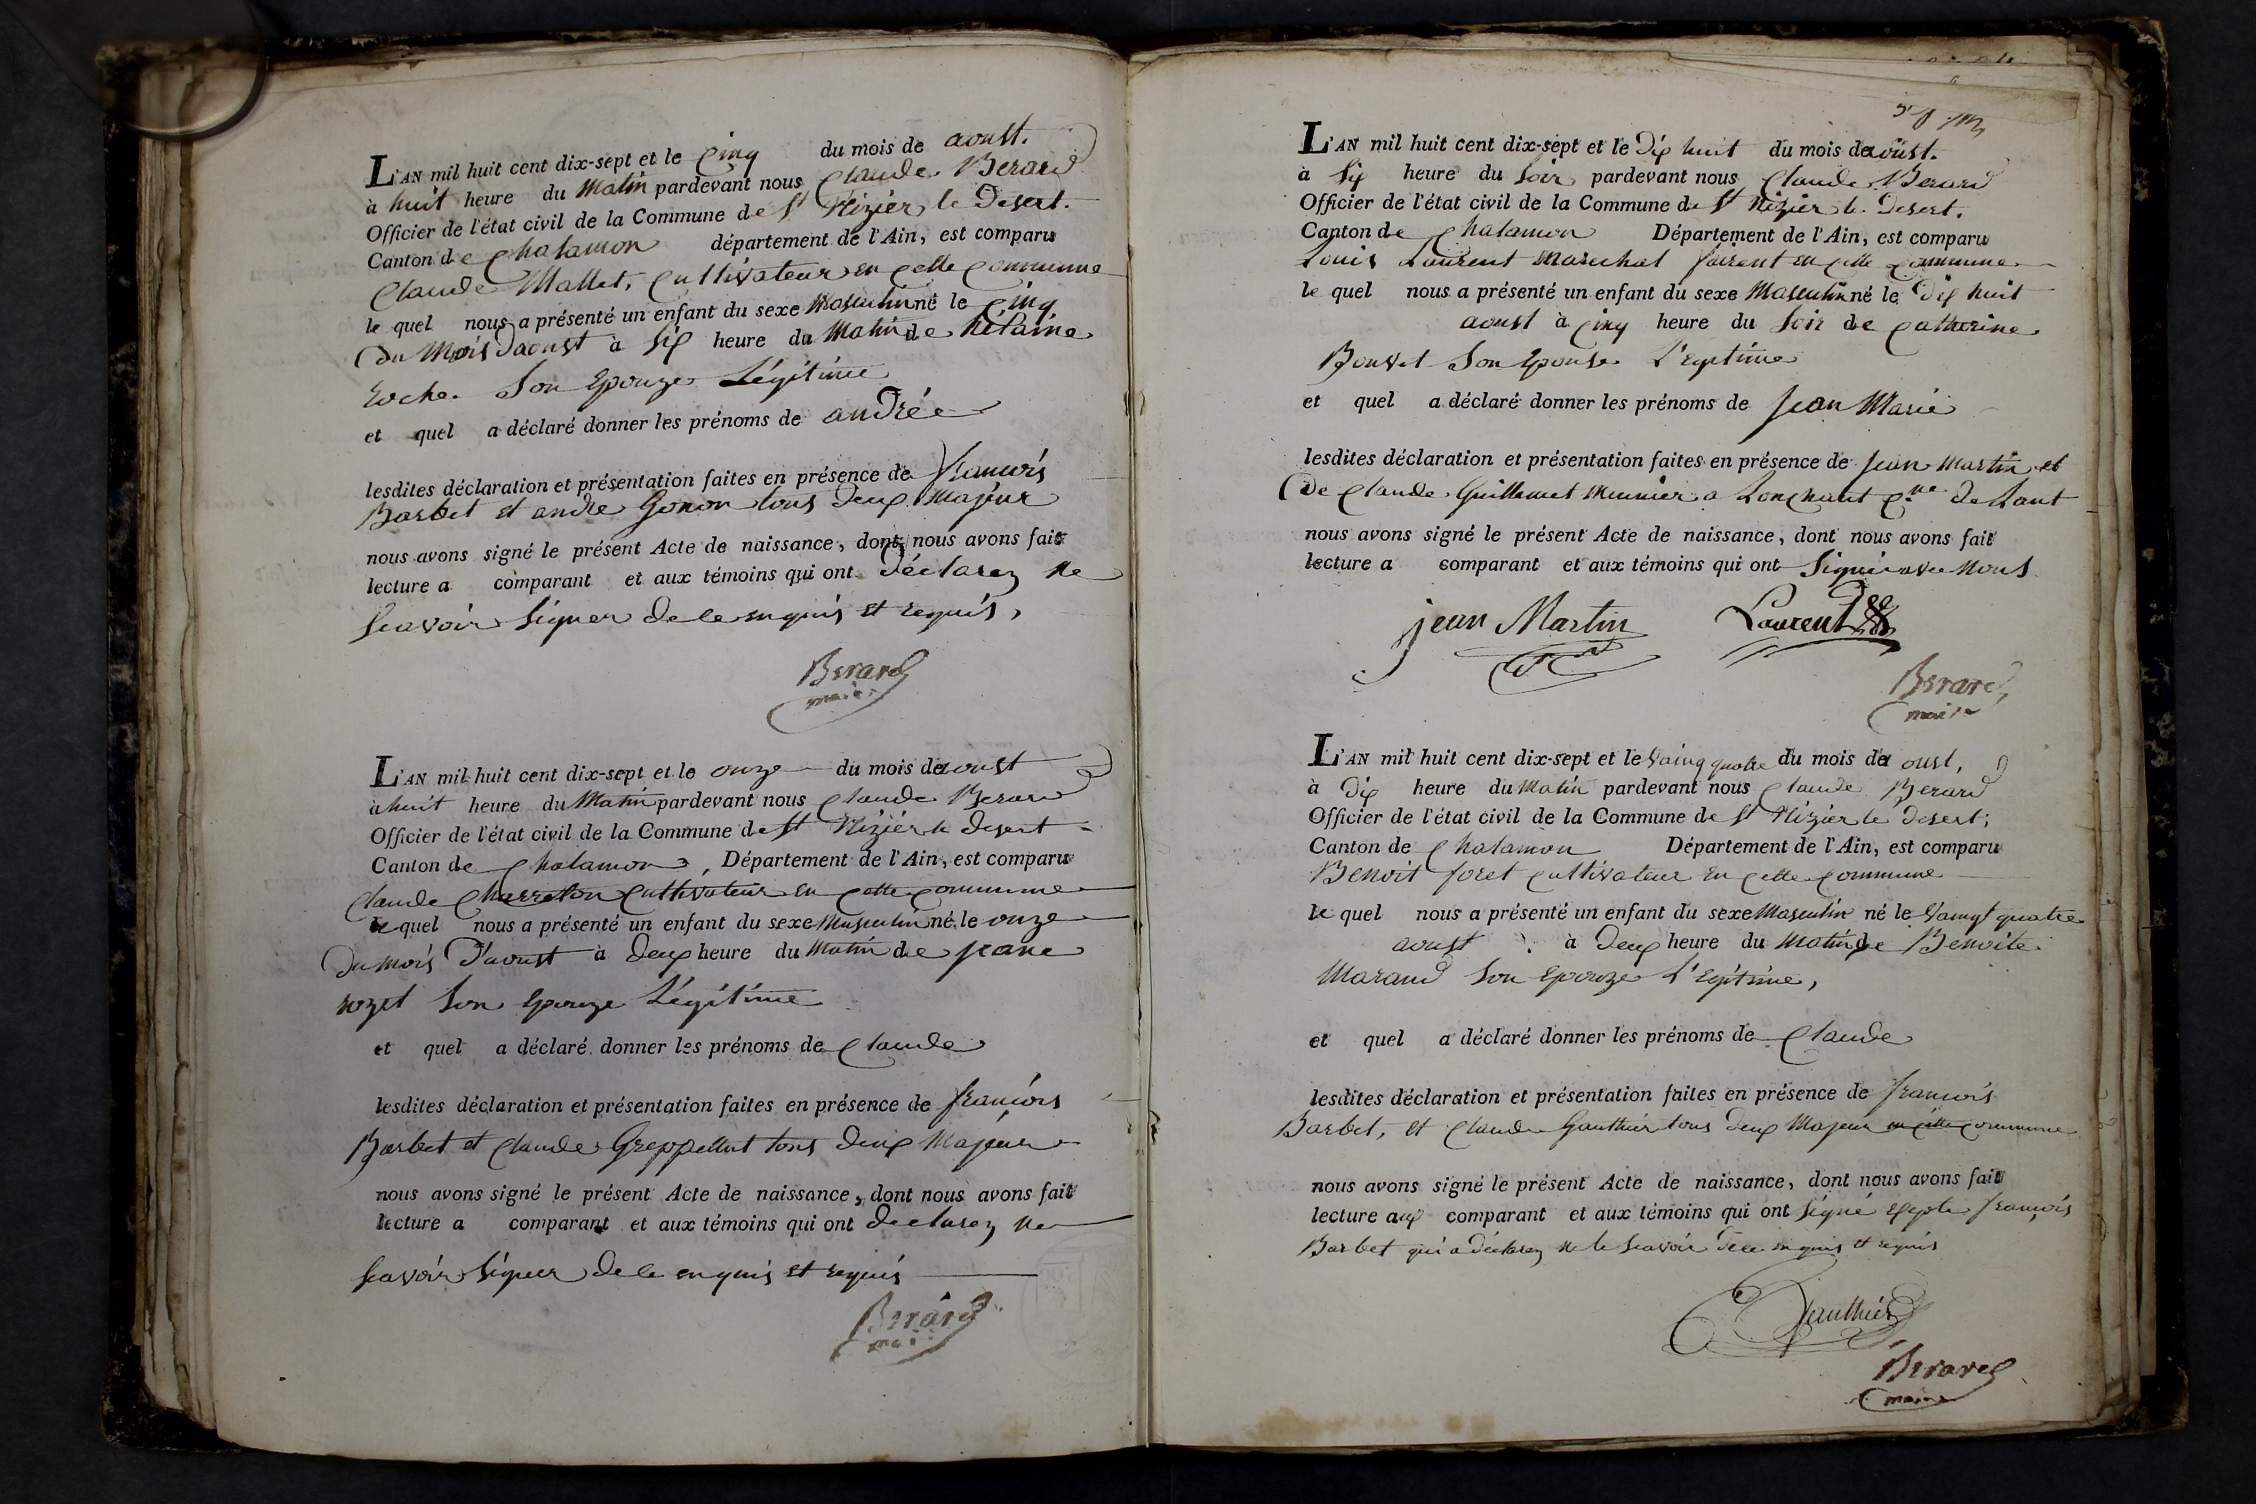 L'AN mil huit cent dix-sept et le Cinq du mois de aoust.
à huit heure du Matin pardevant nous Claude Berard
Officier de l'état civil de la Commune de St Nizier le Desert.
Canton de Chalamon département de l'Ain, est comparu
Claude Mallet, Cultivateur en cette Commune
le quel nous a présenté un enfant du sexe Masculin né le Cinq
Du Mois Daoust à Six heure du Matin de hélaine
roche. Son Epouze Légitime
et quel a déclaré donner les prénoms de andrée
lesdites déclaration et présentation faites en présence de francois
Barbet et andre Gonon tous Deux Majeur
nous avons signé le présent Acte de naissance, dont nous avons fait
lecture a comparant et aux témoins qui ont Déclarez ne
Scavoir Signer de ce enquis et requis,
Berard
maire
L'AN mil huit cent dix-sept et le onze du mois de aoust
à huit heure du Matin pardevant nous Claude Berard
Officier de l'état civil de la Commune de St Nizier le Desert
Canton de Chalamon, Département de l'Ain, est comparu
Claude Charreton Cultivateur en cette Commune
le quel nous a présenté un enfant du sexe Masculin né le onze
Du mois D'aoust à Deux heure du Matin de jeane
rozet Son Epouze Légitime
et quel a déclaré donner les prénoms de Claude
lesdites déclaration et présentation faites en présence de francois
Barbet et Claude tous Deux Majeur
nous avons signé le présent Acte de naissance, dont nous avons fait
lecture a comparant et aux témoins qui ont declarez ne
Scavoir Signer de ce enquis et requis
Berard
maire
L'AN mil huit cent dix-sept et le Dix huit du mois de aoust.
à Six heure du Soir pardevant nous Claude Berard
Officier de l'état civil de la Commune de St Nizier le Desert.
Canton de Chalamon Département de l'Ain, est comparu
Louis Laurent Marechal en cette Commune
le quel nous a présenté un enfant du sexe Masculin né le Dix huit
aoust à Cinq heure du Soir de Catherine
Bouvet Son Epouse L'egitime
et quel a déclaré donner les prénoms de Jean Marie
lesdites déclaration et présentation faites en présence de Jean Martin et
De Claude Guillemet Munier a
nous avons signé le présent Acte de naissance, dont nous avons fait
lecture a comparant et aux témoins qui ont Signé avec Nous
jean Martin Laurent
Berard
maire
L'AN mil huit cent dix-sept et le Vaing quatre du mois de a oust,
à Dix heure du Matin pardevant nous Claude Berard
Officier de l'état civil de la Commune de St Nizier le Desert;
Canton de Chalamon Département de l'Ain, est comparu
Benoit foret Cultivateur en Cette Commune
le quel nous a présenté un enfant du sexe Masculin né le Vaingt quatre
aoust à Deux heure du Matin de Benoite
Marand Son Epouze L'egitime,
et quel a déclaré donner les prénoms de Claude
lesdites déclaration et présentation faites en présence de francois
Barbet, et Claude Gauthier tous Deux Majeur en Cette Commune
nous avons signé le présent Acte de naissance, dont nous avons fait
lecture aux comparant et aux témoins qui ont Signé Exepte francois
Barbet qui a déclarez ne le Scavoir De ce enquis et requis
Gauthier
Berard
maire